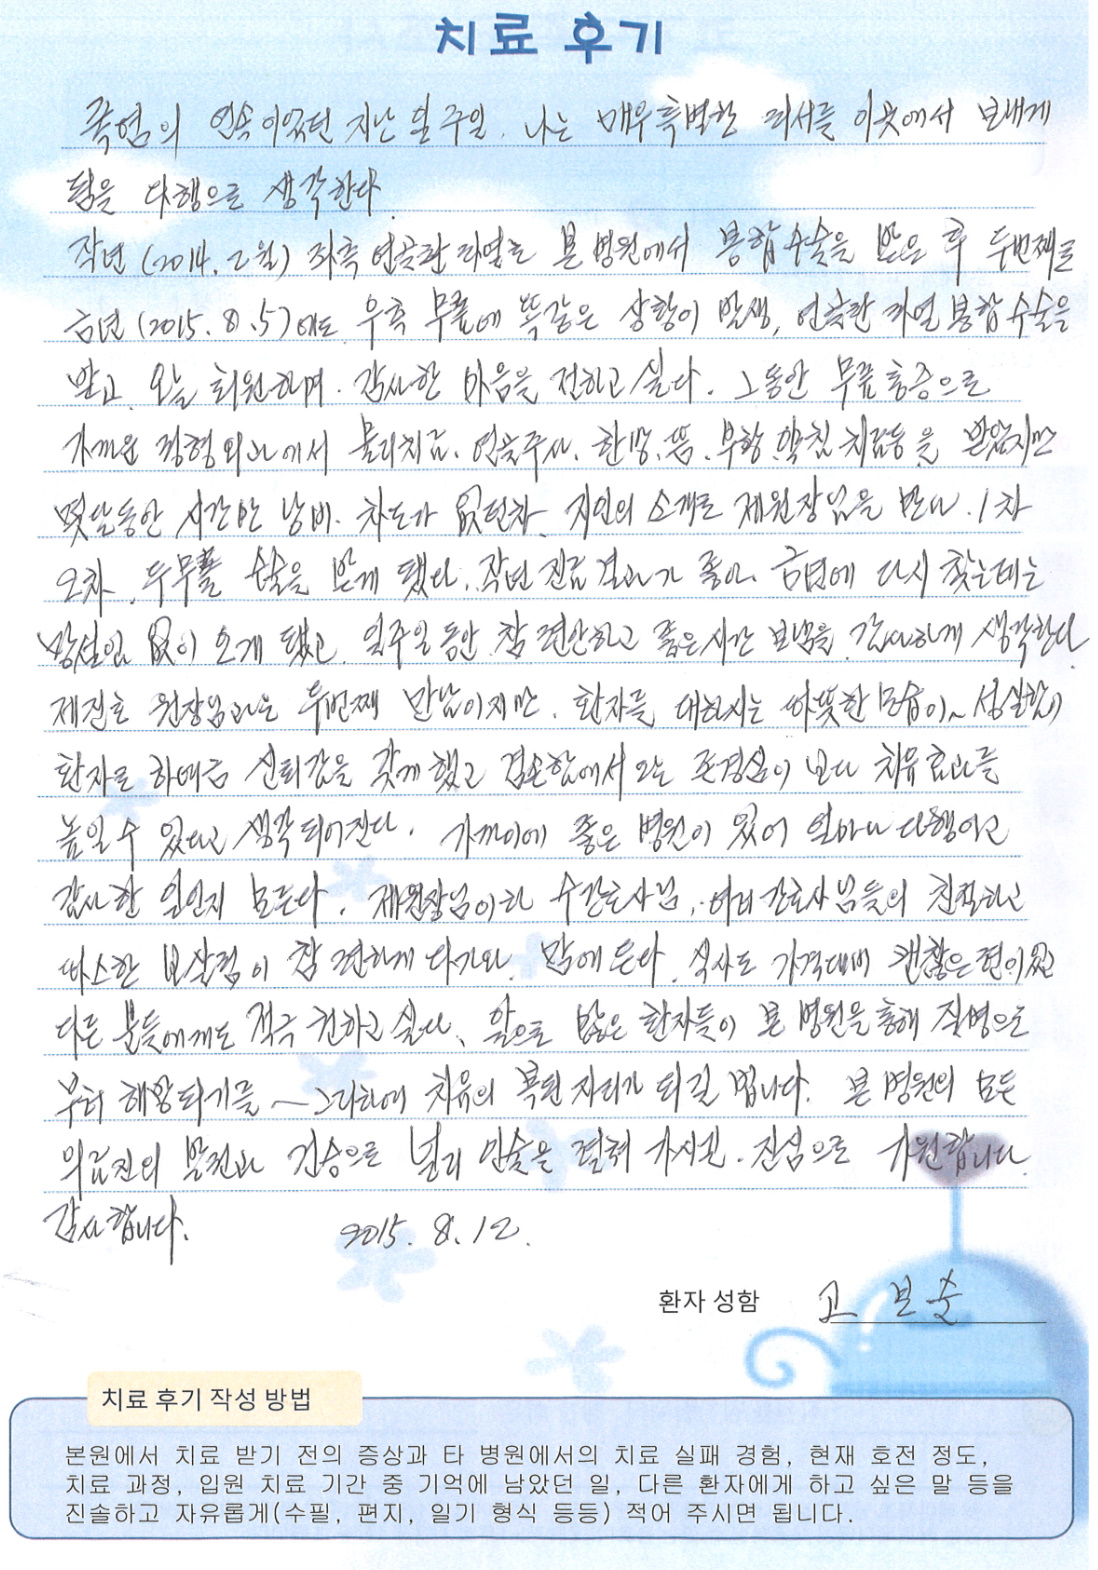 치료 후기
폭염의 연속이었던 지난 일주일, 나는 매우 특별한 피서를 이곳에서 보내게
됨을 다행으로 생각한다.
작년 (2014. 2월) 좌측 연골판 파열로 본 병원에서 봉합수술을 받은 후 두번째로
금년 (2015. 8. 5)에도 우측 무릎에 똑같은 상황이 발생, 연골판 파열 봉합수술을
받고, 오늘 퇴원하며. 감사한 마음을 전하고 싶다. 그동안 무릎 통증으로
가까운 정형외과에서 물리치료, 연골주사, 한방, 뜸, 부항, 약침 치료등을 받았지만
몇달동안 시간만 낭비. 차도가 없던차, 지인의 소개로 제원장님을 만나. 1차
2차, 두무릎 수술을 받게 됐다. 작년 진료 결과가 좋아. 금년에 다시 찾는데는
망설임 없이 오게 됐고, 일주일 동안 참 편안하고 좋은시간 보냄을 감사하게 생각한다.
제진호 원장님과는 두번째 만남이지만, 환자를 대하시는 따뜻한 모습이~ 성실함이
환자로 하여금 신뢰감을 갖게 했고 겸손함에서 오는 존경심이 보다 치유효과를
높일 수 있다고 생각되어진다. 가까이에 좋은 병원이 있어 얼마나 다행이고
감사한 일인지 모른다. 제원장님이하 수간호사님, 여러 간호사님들의 친절하고
따스한 보살핌이 참 편하게 다가와 맘에 든다. 식사도 가격대비 괜찮은 편이었고
다른 분들에게도 적극 권하고 싶다. 앞으로 많은 환자들이 본 병원을 통해 질병으로
부터 해방되기를 ~ 그리하여 치유의 복된 자리가 되길 빕니다. 본 병원의 모든
의료진의 발전과 건승으로 널리 인술을 펼쳐 가시길. 진심으로 기원합니다.
감사합니다. 2015. 8. 12.
환자 성함 고 보 순
치료 후기 작성 방법
본원에서 치료 받기 전의 증상과 타 병원에서의 치료 실패 경험, 현재 호전 정도,
치료 과정, 입원 치료 기간 중 기억에 남았던 일, 다른 환자에게 하고 싶은 말 등을
진솔하고 자유롭게(수필, 편지, 일기 형식 등등) 적어 주시면 됩니다.